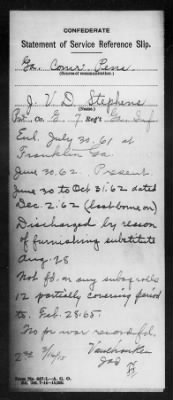 CONFEDERATE
Statement of Service Reference Slip.
Ga. Comr. Pens.
(Source of communication.)
J. V. D. Stephens
Pvt. Co. E. 7. Reg't Ga. Inf
Enl. July 30. 61 at
Franklin Ga.
June 30. 62. Present
June 30 to Oct 31. 62 dated
Dec. 2. 62 (last borne on)
Discharged by reason
of furnishing substitute
Aug. 28
Not fd. on any subsq rolls
12 partially covering period
to Feb. 28. 65.
No P of war record fd.